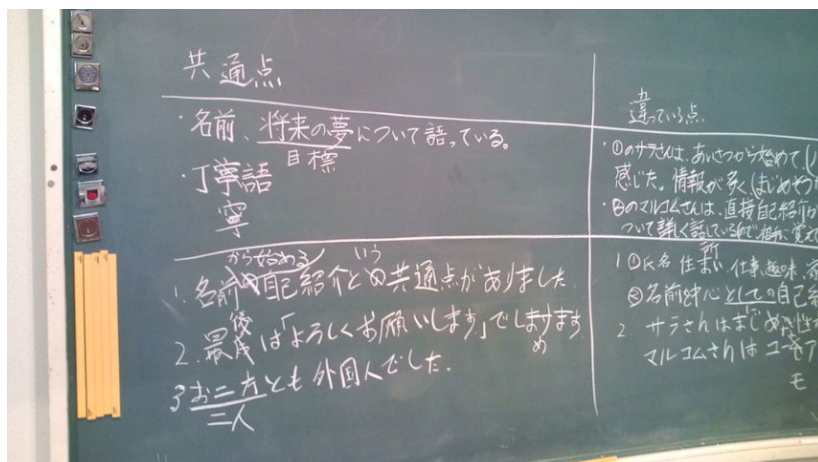 共通点
・名前、将来の夢について語っている。
目標
・丁寧語
寧
から始める
いう
1. 名前の自己紹介との共通点がありました
後
2. 最後は「よろしくお願いします」でしますます
め
3 お二方とも外国人でした。
二人
違っている点
・①のサラさんは、あいさつから始めて
感じた。情報が多く(まじめそう
・②のマルコムさんは、直接自己紹介が
ついて詳しく話しているので
所
1 ①氏名 住まい、仕事、趣味、家
②名前中心としての自己紹
2 サラさんはまじめ
マルコムさんはユーモア
モ